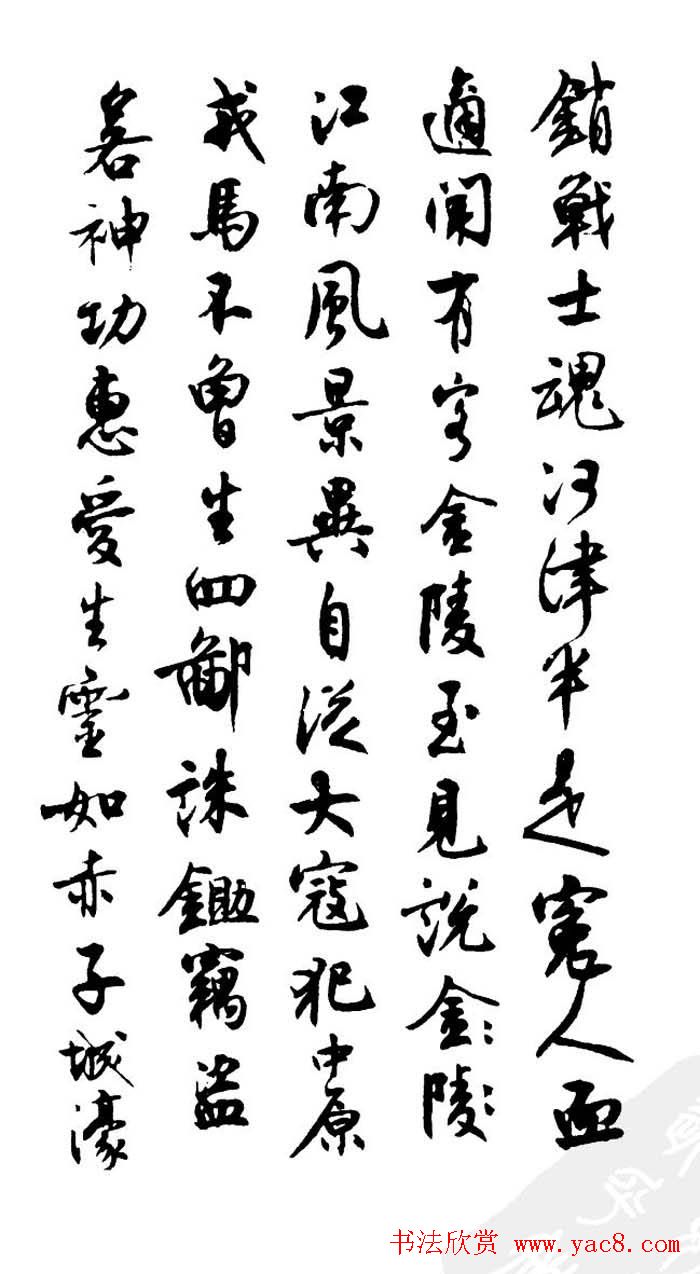 鎖戰士魂河津半是寃人血
適聞有客金陵至見說金陵
江南風景異自從大寇犯中原
戎馬不曾生四鄙誅鋤竊盜
若神功惠愛生靈如赤子城濠
书法欣赏 www.yac8.com